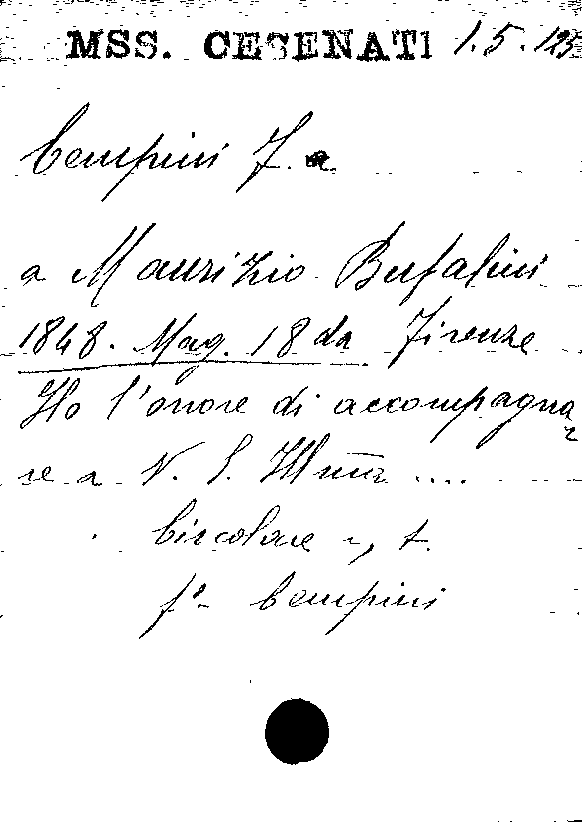 MSS. CESENATI 1.5.123
Cempini F.
a Maurizio Bufalini
1848. Mag. 18 da Firenze
Ho l'onore di accompagna-
re a V. S. Ill̅m̅a ....
Circolare
Cempini